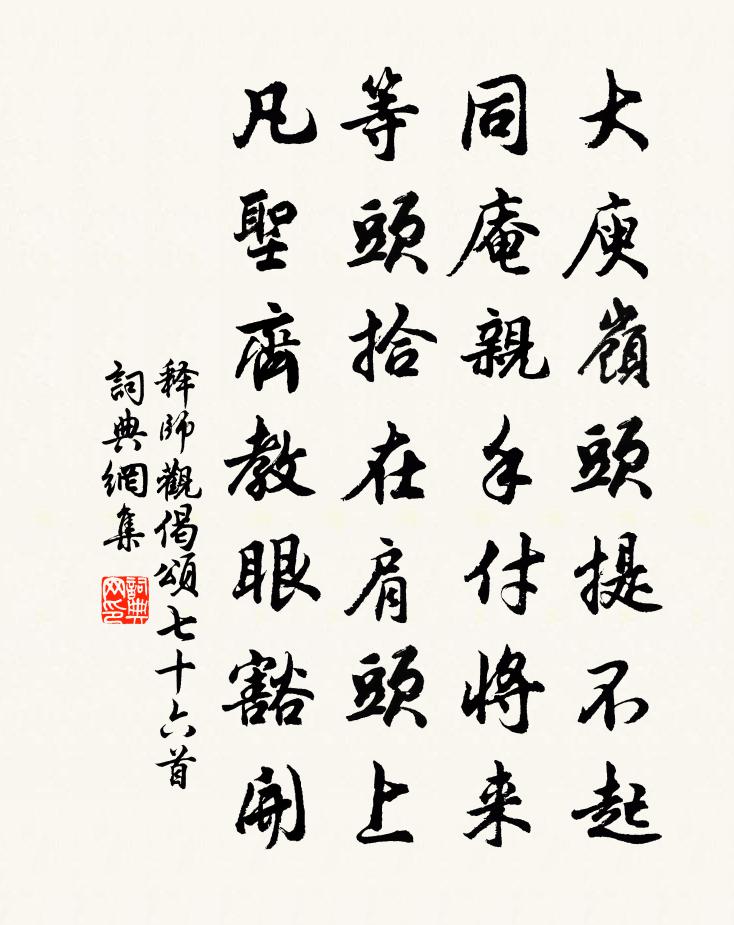 大庾嶺頭提不起
同庵親手付將来
等頭拾在肩頭上
凡聖齊教眼豁開
释師觀偈頌七十六首
詞典網集
詞典网印